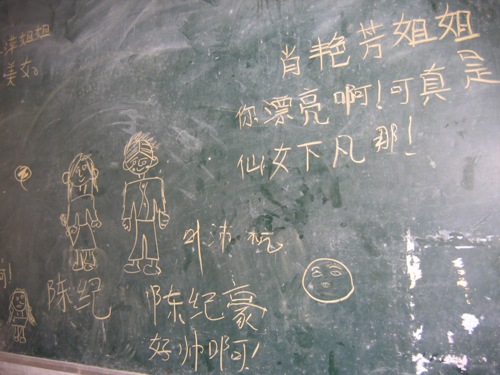 姐姐
美女。
肖艳芳姐姐
你漂亮啊!可真是
仙女下凡那!
叶沛
陈纪
陈纪豪
好帅啊!